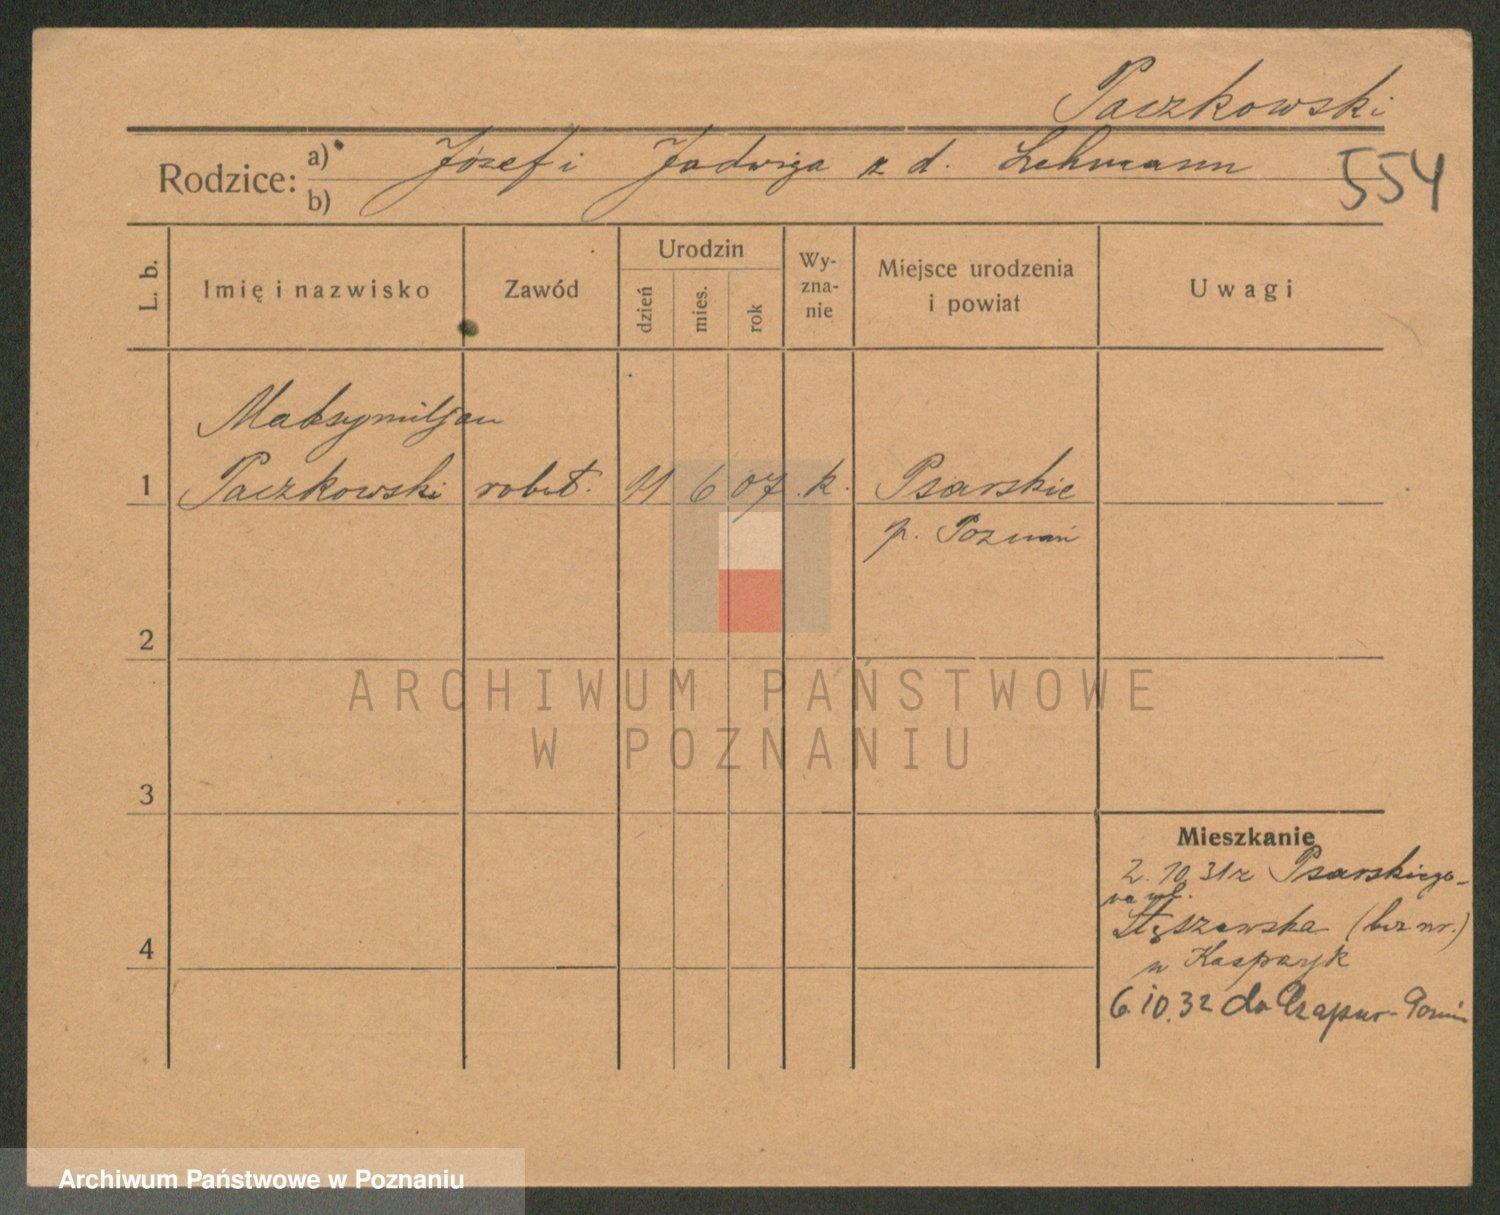 Paczkowski
Rodzice: a) Józef i Jadwiga z d. Lehmann
b)
554
L. b. Imię i nazwisko Zawód Urodzin dzień mies. rok Wyznanie Miejsce urodzenia i powiat Uwagi
Maksymiljan
1 Paczkowski robot. 11 6 07 k. Psarskie
p. Poznań
2
ARCHIWUM PAŃSTWOWE
W POZNANIU
3
Mieszkanie
2.10.31 z Psarskiego
na ul.
Stęszewska (bez nr.)
4
u Kasprzyk
6.10.32 do Czapur-
Archiwum Państwowe w Poznaniu